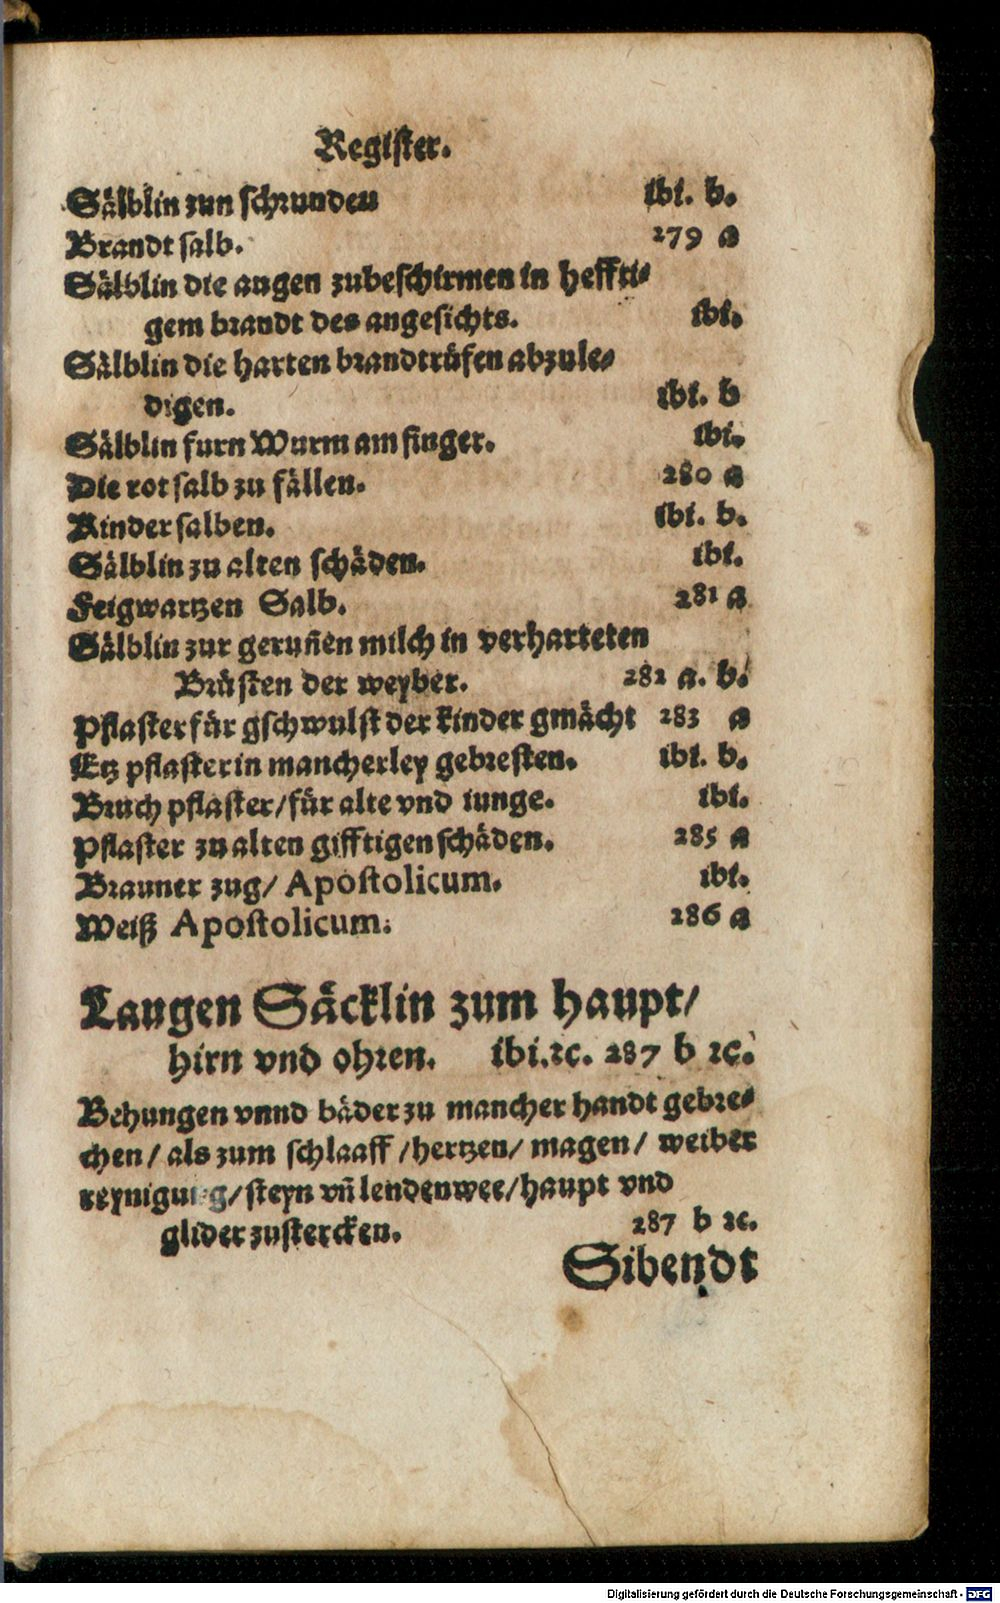 Register.
Sälblin zun schrunden ibi. b.
Brandt salb. 279 a
Sälblin die augen zubeschirmen in heffti⸗
gem brandt des angesichts. ibi.
Sälblin die harten brandtrüfen abzule⸗
digen. ibi. b
Sälblin furn Wurm am finger. ibi.
Die rot salb zu fällen. 280 a
Kinder salben. ibi. b.
Sälblin zu alten schäden. ibi.
Feigwartzen Salb. 281 a
Sälblin zur geruñen milch in verharteten
Brüsten der weyber. 282 a. b.
Pflaster für gschwulst der kinder gmächt 283 a
Etz pflaster in mancherley gebresten. ibi. b.
Bruch pflaster/ für alte vnd iunge. ibi.
Pflaster zu alten gifftigen schäden. 285 a
Brauner zug/ Apostolicum. ibi.
Weiß Apostolicum. 286 a
Laugen Säcklin zum haupt/
hirn vnd ohren. ibi.ꝛc. 287 b ꝛc.
Behungen vnnd bäder zu mancher handt gebre⸗
chen/ als zum schlaaff/ hertzen/ magen/ weiber
reynigung/ steyn vñ lendenwee/ haupt vnd
glider zustercken. 287 b ꝛc.
Sibendt
Digitalisierung gefördert durch die Deutsche Forschungsgemeinschaft - DFG